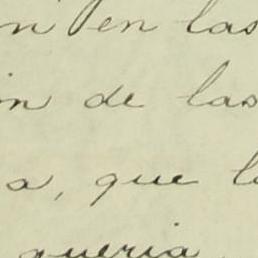 n en las
in de las
a, que l
queria